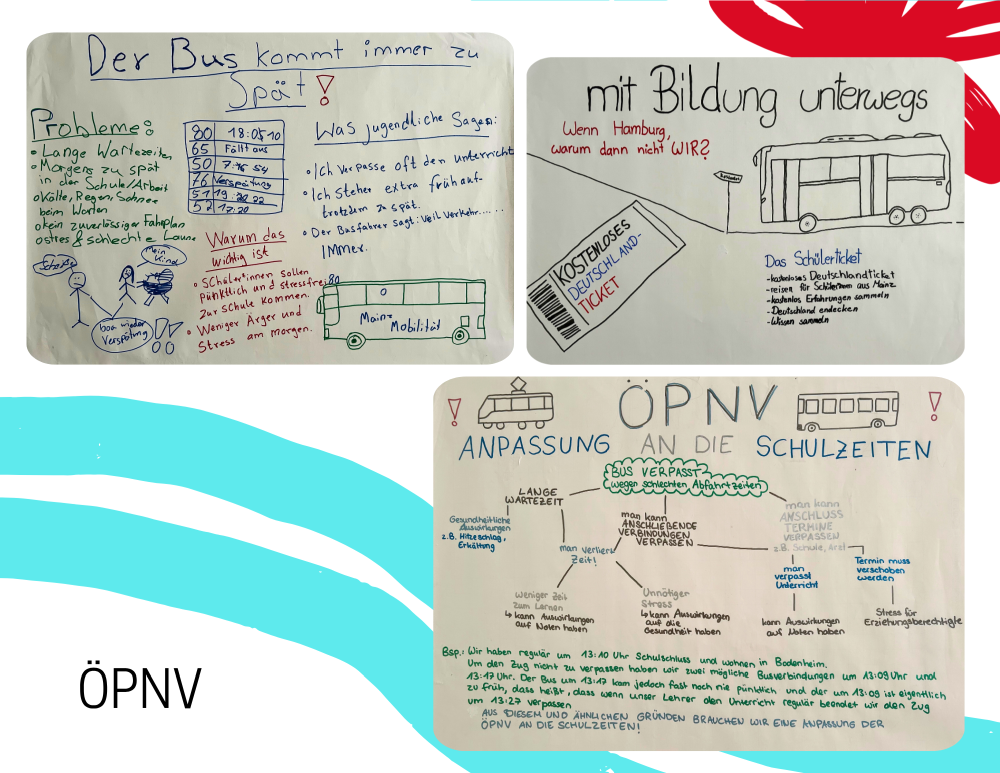 Der Bus kommt immer zu
Spät!
Probleme:
• Lange Wartezeiten
• Morgens zu spät
in der Schule/Arbeit
• Kälte, Regen, Schnee
beim Warten
• kein zuverlässiger Fahrplan
• stres & schlechte Laune
Scheiße
Mein Kind
boa wieder
Verspätung
!!
80 18:05 10
65 Fällt aus
50
76 Verspätung
51 19:20 22
52 17:20
Warum das
wichtig ist
• Schüler*innen sollen
Pünktlich und stressfrei
zur Schule kommen.
• Weniger Ärger und
Stress am morgen.
Was jugendliche Sagen:
• Ich verpasse oft den unterricht
• Ich steher extra früh auf-
trotzdem zu spät.
• Der Busfahrer sagt: veil verkehr.....
Immer.
80
Mainz
Mobilität
mit Bildung unterwegs
Wenn Hamburg,
warum dann nicht WIR?
KOSTENLOSES
DEUTSCHLAND-
TICKET
Das Schülerticket
- kostenloses Deutschlandticket
- reisen für Schüler*innen aus Mainz
- kostenlos Erfahrungen sammeln
- Deutschland endecken
- Wissen sammeln
! ÖPNV !
ANPASSUNG AN DIE SCHULZEITEN
BUS VERPASST
wegen schlechten Abfahrtzeiten
LANGE
WARTEZEIT
Gesundheitliche
Auswirkungen
z.B. Hitzeschlag,
Erkältung
man verliert
Zeit!
man kann
ANSCHLIEßENDE
VERBINDUNGEN
VERPASSEN
man kann
ANSCHLUSS
TERMINE
VERPASSEN
z.B. Schule, Arzt
man
verpasst
Unterricht
Termin muss
verschoben
werden
weniger Zeit
zum Lernen
↳ kann Auswirkungen
auf Noten haben
Unnötiger
Stress
↳ kann Auswirkungen
auf die
Gesundheit haben
kann Auswirkungen
auf Noten haben
Stress für
Erziehungsberechtigte
Bsp.: Wir haben regulär um 13:10 Uhr Schulschluss und wohnen in Bodenheim.
Um den Zug nicht zu verpassen haben wir zwei mögliche Busverbindungen um 13:09 Uhr und
13:17 Uhr. Der Bus um 13:17 kam jedoch fast noch nie pünktlich und der um 13:09 ist eigentlich
zu früh, dass heißt, dass wenn unser Lehrer den Unterricht regulär beendet wir den Zug
um 13:27 verpassen
AUS DIESEM UND ÄHNLICHEN GRÜNDEN BRAUCHEN WIR EINE ANPASSUNG DER
ÖPNV AN DIE SCHULZEITEN!
ÖPNV